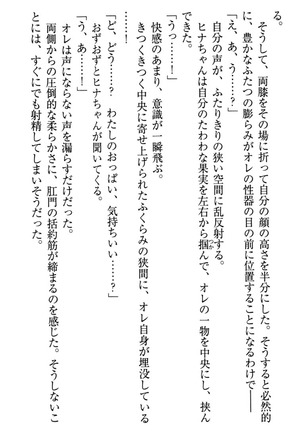 る。
　そうして、両膝をその場に折って自分の顔の高さを半分にした。そうすると必然的
に、豊かなふたつの膨らみがオレの性器の目の前に位置することになるわけで──
「え、あ、う……？」
　自分の声が、ふたりきりの狭い空間に乱反射する。
　ヒナちゃんは自分のたわわな果実を左右から掴んで、オレの一物を中央にし、挟ん
できた。
「うっ……！」
　快感のあまり、意識が一瞬飛ぶ。
　きつくきつく中央に寄せ上げられたふくらみの狭間に、オレ自身が埋没している
「ど、どう……？　わたしのおっぱい、気持ちいい……？」
　おずおずとヒナちゃんが聞いてくる。
「う、あ……！」
　オレは声にならない声を漏らすだけだった。
　両側からの圧倒的な柔らかさに、肛門の括約筋が締まるのを感じた。そうしないこ
とには、すぐにでも射精してしまいそうだった。